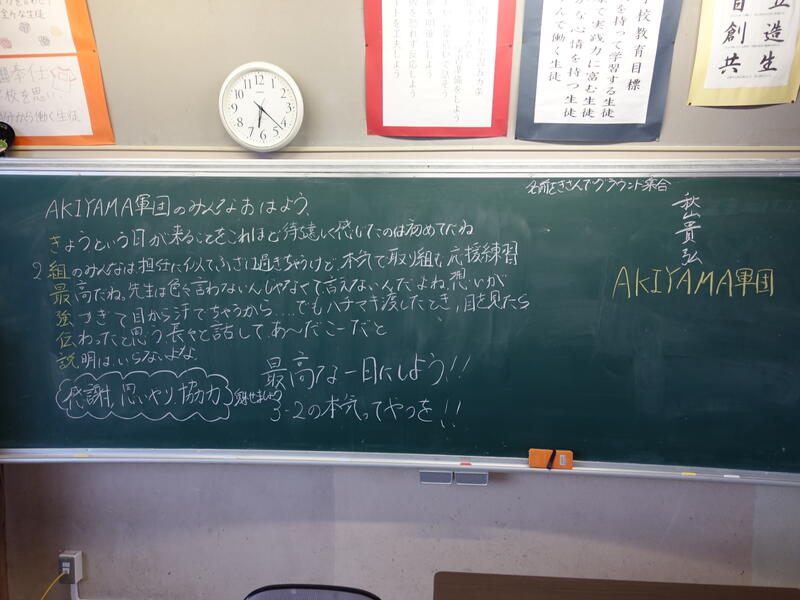 奉仕
学校を思い
自分から働く生徒
学校教育目標
を持って学習する生徒
実践力に富む生徒
かな心情を持つ生徒
んで働く生徒
自立
創造
共生
12 1 2 3 4 5 6 7 8 9 10 11
AKIYAMA軍団のみんなおはよう。
きょうという日が来ることをこれほど待遠しく感じたのは初めてだね
2組のみんなは担任に似てふざけ過ぎちゃうけど、本気で取り組む応援練習
最高だね。先生は色々言わないんじゃなくて言えないんだよね、想いが
強すぎて目から汗でちゃうから....でもハチマキ渡したとき、目を見たら
伝わったと思う長々と話して、あ〜だこーだと
説明は、いらないよな。
感謝、思いやり、協力
最高な一日にしよう!!
魅せましょう
3-2の本気ってやつを!!
グラウンド集合
秋山貴弘
AKIYAMA軍団